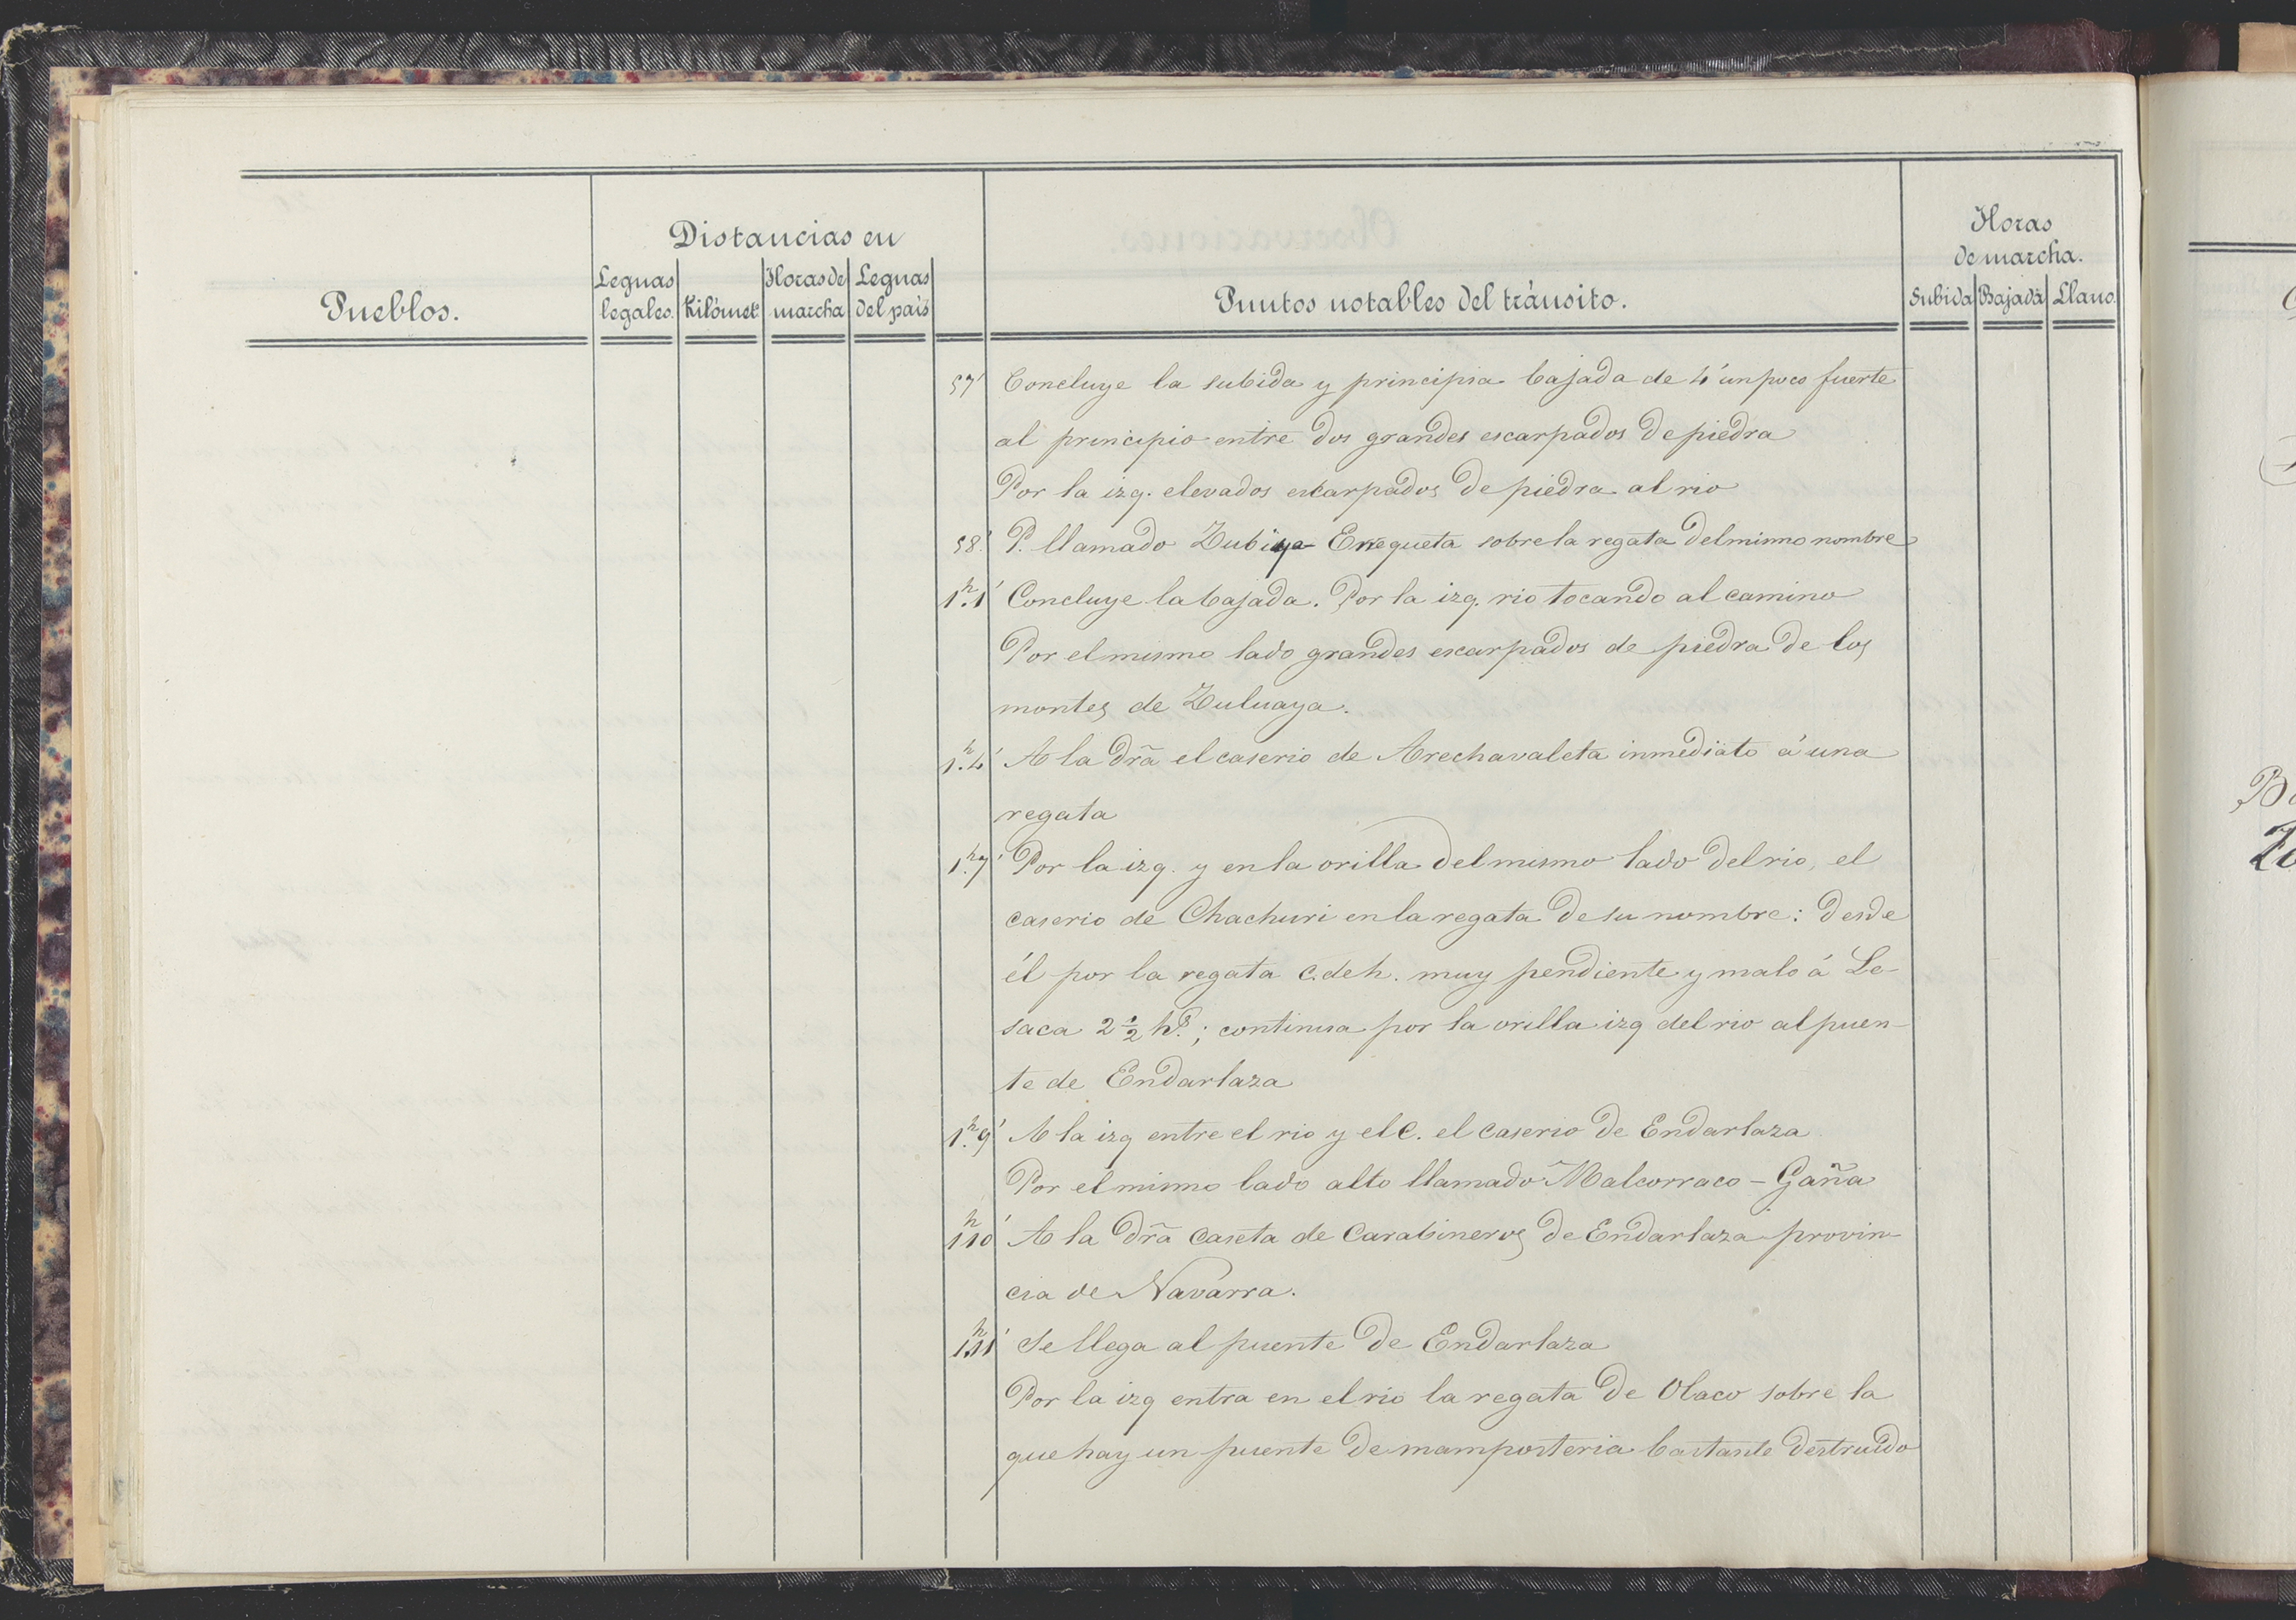 Pueblos.
Distancias en
Leguas legales.
Kilómets
Horas de marcha
Leguas del pais
Puntos notables del tránsito.
Horas de marcha.
Subida Bajada Llano.
57' Concluye la subida y principia bajada de 4' un poco fuerte
al principio entre dos grandes escarpados de piedra
Por la izq. elevados escarpados de piedra al rio
58.' P. llamado Erregueta sobre la regata del mismo nombre
1.h1' Concluye la bajada. Por la izq. rio tocando al camino
Por el mismo lado grandes escarpados de piedra de los
montes de Zuluaya.
1.h4' A la drã el caserio de Arechavaleta inmediato á una
regata
1.h7' Por la izq. y en la orilla del mismo lado del rio, el
caserio de Chachuri en la regata de su nombre: desde
él por la regata c. de h. muy pendiente y malo á Le-
saca 2 1/2 hs.; continua por la orilla izq del rio al puen-
te de Endarlaza
1.h9' A la izq entre el rio y el c. el caserio de Endarlaza
Por el mismo lado alto llamado Malcorraco - Gaña
1h10' A la drã caseta de Carabineros de Endarlaza provin-
cia de Navarra.
1.h11' Se llega al puente de Endarlaza
Por la izq entra en el rio la regata de Olaco sobre la
que hay un puente de mamposteria bastante destruido